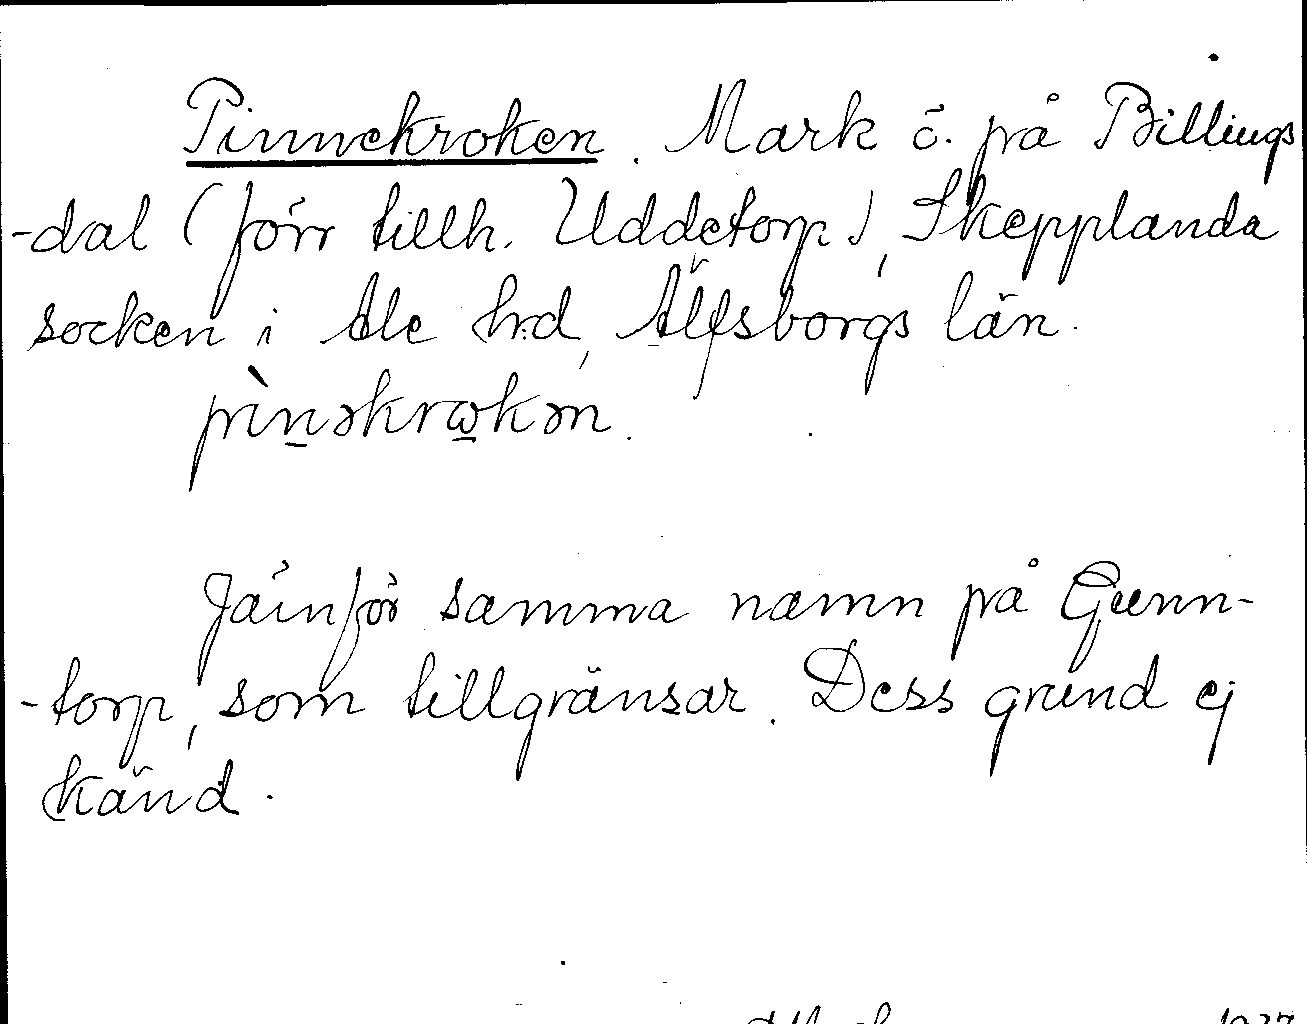 Pinnekroken. Mark ö. på Billings
-dal (förr tillh. Uddetorp), Skepplanda
socken i Ale hd, Älfsborgs län.
pìn̲əkrɷ̲kən.
Jämför samma namn på Gunn-
-torp, som tillgränsar. Dess grund ej
känd.